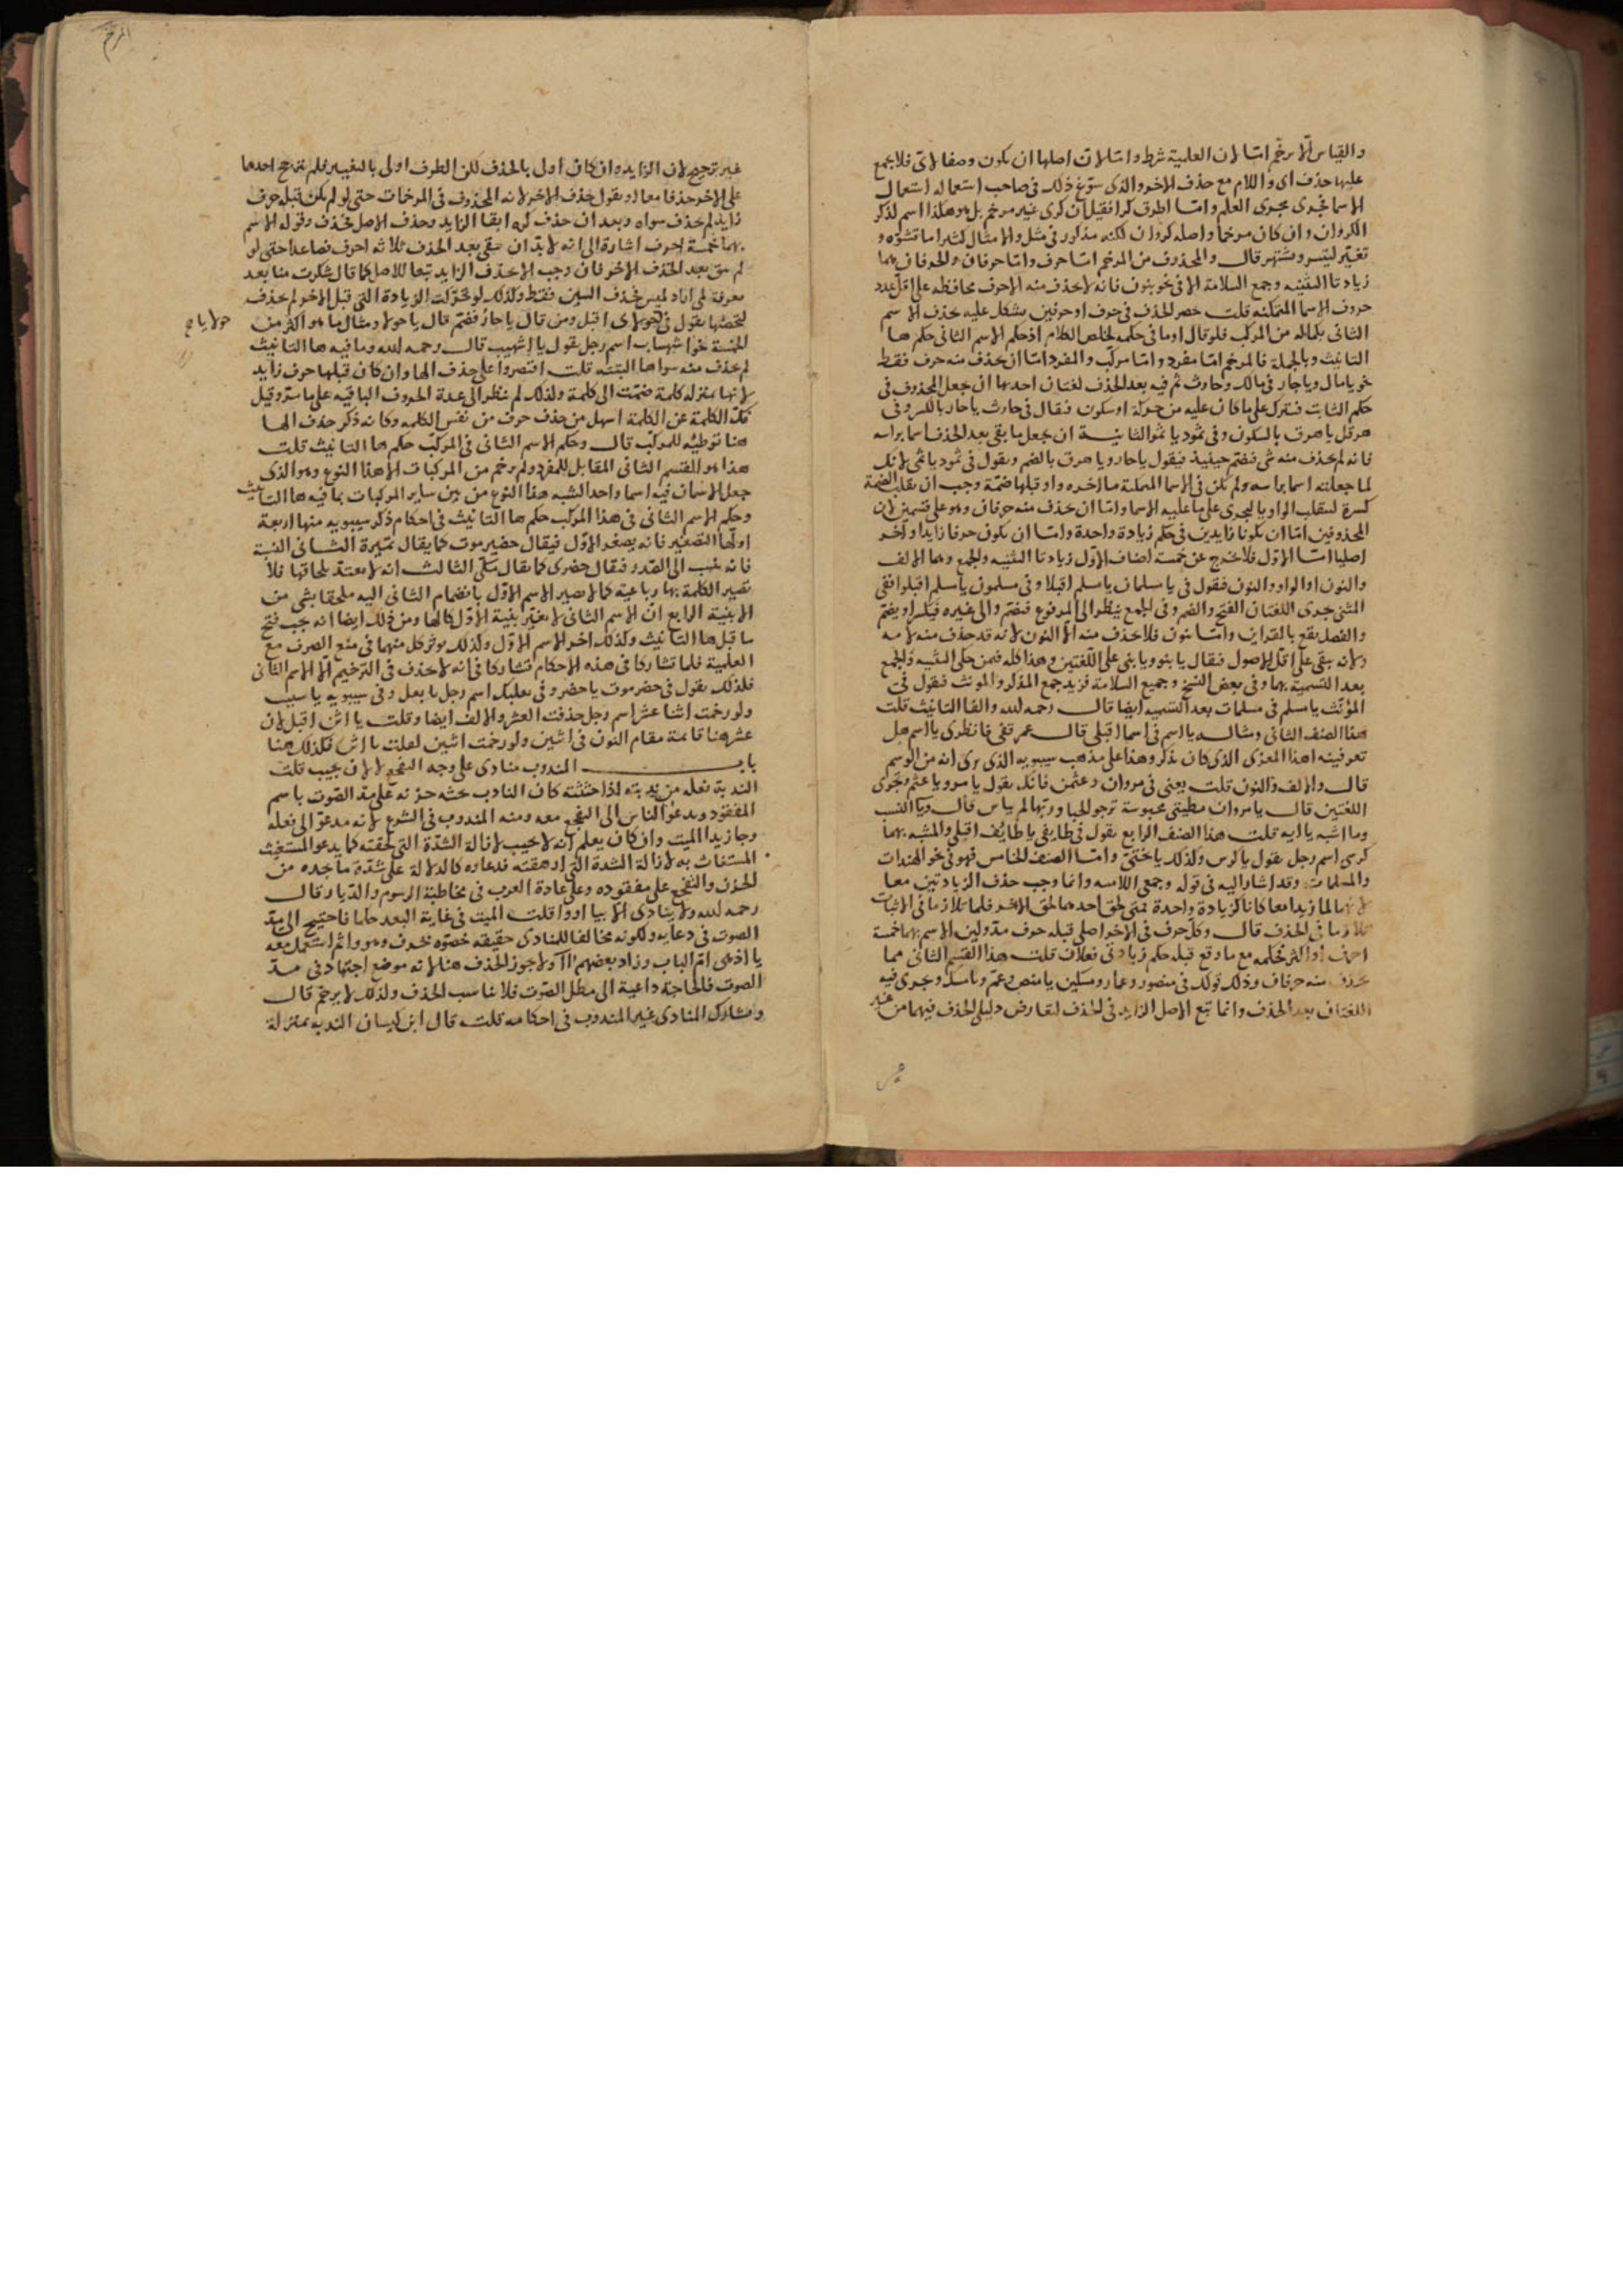 والقياس الا يرخم اما لان العلمية شرط واما لان اصلها ان يكون وصفا لاي فلا يجمع
عليها حذف اي واللام مع حذف الاخر والذي سوغ ذلك في صاحب استعماله استعمال
الاسما فجرى مجرى العلم واما اطرق كرا فقيل ان كرى غير مرخم بل هو هكذا اسم لذكر
الكروان وان كان مرخما واصله كروان لكنه مذكور في مثل والامثال كثيرا ما تشوه و
تغير لتسير وتشتهر قال والمحذوف من المرخم اما حرف واما حرفان والحرفان هما
زيادتا التثنيه وجمع السلامة الا في نحو بنون فانه لا يحذف منه الاحرف محافظه على اقل عدد
حروف الاسما المتمكنه قلت حصر الحذف في حرف او حرفين يشكل عليه حذف الاسم
الثاني بكماله من المركب فلو قال او ما في حكمه لخلص الكلام اذ حكم الاسم الثاني حكم ها
التانيث وبالجملة فالمرخم اما مفرد واما مركب والمفرد اما ان يحذف منه حرف فقط
نحو يا مال ويا حار في مالك وحارث ثم فيه بعد الحذف لغتان احدهما ان يجعل المحذوف في
حكم الثابت فيترك على ما كان عليه من حركة او سكون فيقال في حارث يا حار بالكسر وفي
هرقل يا هرق بالسكون وفي ثمود يا ثمو الثانية ان يجعل ما بقي بعد الحذف اسما براسه
فانه لم يحذف منه شي فيضم حينيذ فيقول يا حار ويا هرق بالضم ويقول في ثمود يا ثمي لانك
لما جعلته اسما براسه ولم يكن في الاسما المتمكنة ما اخره واو قبلها ضمة وجب ان تقلب الضمة
كسرة لتنقلب الواو يا ليجرى على ما عليه الاسما واما ان يحذف منه حرفان وهو على قسمين لان
المحذوفين اما ان يكونا زايدين في حكم زيادة واحدة واما ان يكون حرفا زايدا واخر
اصليا اما الاول فلا يخرج عن خمسة اصناف الاول زيادتا التثنيه والجمع وهما الالف
والنون او الواو والنون فيقول في يا مسلمان يا مسلم اقبلا وفي مسلمون يا مسلم اقبلوا ففي
المثنى يجرى اللغتان الفتح والضم وفي الجمع ينظر الى المرفوع فيضم والى غيره فيكسر او يضم
والفصل يقع بالقراين واما بنون فلا يحذف منه الا النون لانه قد حذف منه لامه
ولانه يبقى على اقل الاصول فيقال يا بنو ويا بني على اللغتين وهذا كله فيمن حكى التثنيه والجمع
بعد التسمية بهما وفي بعض النسخ وجميع السلامة فزيد جمع المذكر والمونث فيقول في
المؤنث يا مسلم في مسلمات بعد التسميه ايضا قال رحمه لله والفا التانيث قلت
هذا الصنف الثاني ومثاله يا اسم في اسما اقبلي قال عمر قفي فانظري يا اسم هل
تعرفينه اهذا المعزي الذي كان يذكر وهذا على مذهب سيبويه الذي يرى انه من الوسم
قال والالف والنون قلت يعني في مروان وعثمن فانك يقول يا مرو ويا عثم ويجرى
اللغتين قال يا مروان مطيتي محبوسة ترجو الحبا وربها لم يياس قال ويا النسب
وما اشبه يا ايه قلت هذا الصنف الرابع يقول في طايفي يا طايف اقبل والمشبه بهما
كرسي اسم رجل يقول يا كرس وكذلك يا ختي واما الصنف الخامس فهو في نحو الهندات
والمسلمات وقد اشار اليه في قوله وجمعي السلامه وانما وجب حذف الزيادتين معا
لانهما لما زيدا معا كانا كزيادة واحدة متى لحق احدهما لحق الاخر فلما تلازما في الاثبات
تلازما في الحذف قال وكل حرف في الاخر اصلي قبله حرف مد ولين الاسم بهما خمسة
احرف او اكثر فحكمه مع ما وقع قبله حكم زيادتي فعلان قلت هذا القسم الثاني مما
يحذف منه حرفان وذلك قولك في منصور وعمار ومسكين يا منص وعم ومسك ويجرى فيه
اللغتان بعد الحذف وانما تبع الاصل الزايد في الحذف لتعارض دليلي الحذف فيهما من غير
غير ترجيح لان الزايد وان كان اولى بالحذف لكن الطرف اولى بالتغيير فلم يترجح احدهما
على الاخر حذفا معا او يقول حذف الاخر لانه المحذوف في المرخمات حتى لو لم يكن قبله حرف
زايد لم يحذف سواه وبعد ان حذف كره ابقا الزايد وحذف الاصل فحذف وقوله الاسم
بهما خمسة احرف اشارة الى انه لا بد ان يبقى بعد الحذف ثلاثه احرف فصاعدا حتى لو
لم يبق بعد الحذف الاحرفان وجب الا يحذف الزايد تبعا للاصل كما قال تنكرت منا بعد
معرفة لمي اباد لميس فحذف السين فقط وكذلك لو تحركت الزيادة التي قبل الاخر لم يحذف
لتحصنها يقول في حولاى اقبل ومن قال يا حار فضم قال يا حولا ومثال ما هو اكثر من
حولايا صح
الخمسة نحو اشهباب اسم رجل يقول يا اشهيب قال رحمه لله وما فيه ها التانيث
لم يحذف منه سواها البتة قلت اقتصروا على حذف الها وان كان قبلها حرف زايد
لانها بمنزله كلمة ضمت الى كلمة ولذلك لم ينظر الى عدة الحروف الباقيه على ما مر وقيل
فك الكلمة عن الكلمة اسهل من حذف حرف من نفس الكلمه وكانه ذكر حذف الها
هنا توطيه للمركب قال وحكم الاسم الثاني في المركب حكم ها التانيث قلت
هذا هو القسم الثاني المقابل للمفرد ولم يرخم من المركبات الا هذا النوع وهو الذي
جعل الاسمان فيه اسما واحدا لشبه هذا النوع من بين ساير المركبات بما فيه ها التانيث
وحكم الاسم الثاني في هذا المركب حكم ها التانيث في احكام ذكر سيبويه منها اربعة
اولها التصغير فانه يصغر الاول فيقال حضيرموت كما يقال تميرة الثاني النسبة
فانه ينسب الى الصدر فيقال حضري كما يقال سلمي الثالث انه لا يعتد بلحاقها فلا
تصير الكلمة بها رباعية كما لا يصير الاسم الاول بانضمام الثاني اليه ملحقا بشي من
الابنية الرابع ان الاسم الثاني لا يغير بنية الاول كالها ومن ذلك ايضا انه يجب فتح
ما قبل ها التانيث وكذلك اخر الاسم الاول وكذلك يوثر كل منهما في منع الصرف مع
العلمية فلما تشاركا في هذه الاحكام تشاركا في انه لا يحذف في الترخيم الا الاسم الثاني
فلذلك يقول في حضرموت يا حضر وفي بعلبك اسم رجل يا بعل وفي سيبويه يا سيب
ولو رخمت اثنا عشر اسم رجل حذفت العشر والالف ايضا وقلت يا اثن اقبل لان
عشر هنا قايمة مقام النون في اثنين ولو رخمت اثنين لقلت يا اثن فكذلك هنا
باب المندوب منادى على وجه التفجع لا لان يجيب قلت
الندبة فعله من ندبته اذا حثثته كان النادب حثه حزنه على مد الصوت باسم
المفقود ويدعو الناس الى التفجع معه ومنه المندوب في الشرع لانه مدعو الى فعله
وجا زيدا الميت وان كان يعلم انه لا يجيب لازالة الشدة التي لحقته كما يدعو المستغيث
المستغاث به لازالة الشدة التي ارهقته فدعاوه كالدلالة على شدة ما يجده من
الحزن والتفجع على مفقوده وعلى عادة العرب في مخاطبة الرسوم والديار قال
رحمه لله ولا ينادى الا بيا او وا قلت الميت في غاية البعد حكما فاحتيج الى مد
الصوت في دعايه ولكونه مخالفا للمنادى حقيقه خصوه بحرف وهو وا ثم استعمل معه
يا اذ هي ام الباب وزاد بعضهم اا ولا يجوز الحذف هنا لانه موضع اجتهاد في مد
الصوت فالحاجة داعية الى مطل الصوت فلا يناسب الحذف ولذلك لا يرخم قال
ويشارك المنادى غير المندوب في احكامه قلت قال ابن كيسان الندبه بمنزلة